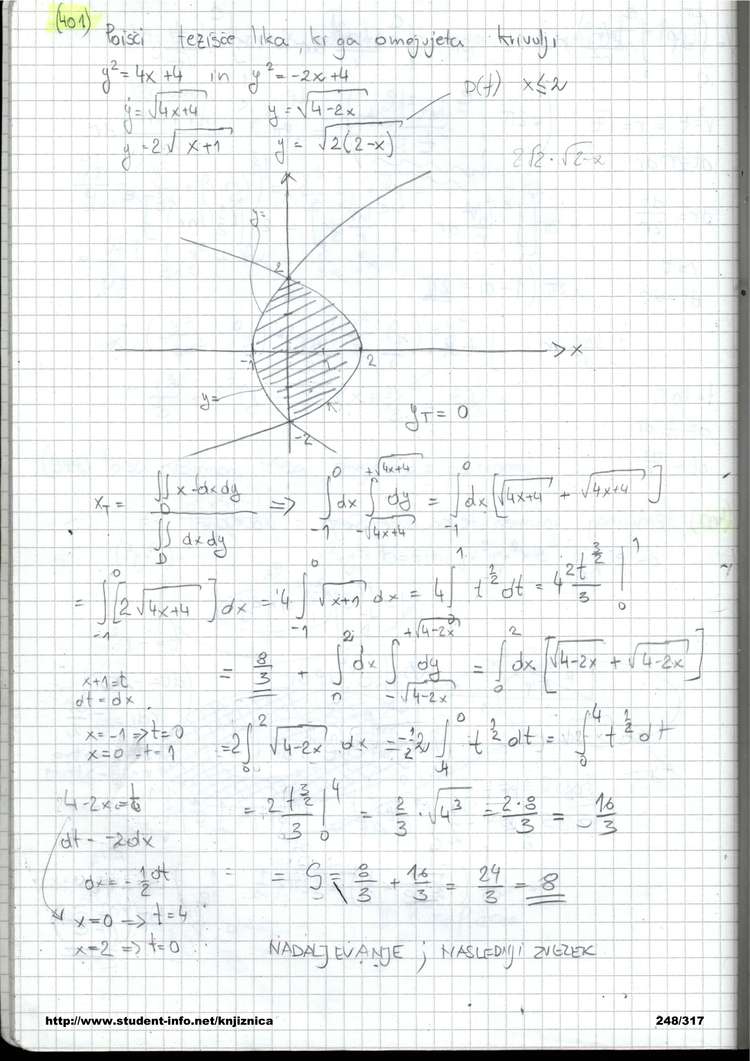 (401) Poišči težišče lika, ki ga omejujeta krivulji
y²=4x+4 in y²=-2x+4
y=√(4x+4) y=√(4-2x) D(f) x≤2
y=2√(x+1) y=√(2(2-x))
2√2·√(2-x)
y=
2
-1 1 2 x
y=
-2
y_T=0
x_T = ∬_D x·dxdy / ∬_D dxdy => ∫_{-1}^{0} dx ∫_{-√(4x+4)}^{+√(4x+4)} dy = ∫_{-1}^{0} dx[√(4x+4) + √(4x+4)]
= ∫_{-1}^{0} [2√(4x+4)] dx = 4∫_{-1}^{0} √(x+1) dx = 4∫_{0}^{1} t^{1/2} dt = 4 2t^{3/2}/3 |_{0}^{1}
= 8/3 + ∫_{0}^{2} dx ∫_{-√(4-2x)}^{+√(4-2x)} dy = ∫_{0}^{2} dx [√(4-2x) + √(4-2x)]
x+1=t
dt=dx
x=-1 => t=0
x=0 - t=1
= 2∫_{0}^{2} √(4-2x) dx = -1/2 2∫_{4}^{0} t^{1/2} dt = ∫_{0}^{4} t^{1/2} dt
4-2x=t
dt=-2dx
dx=-1/2 dt
x=0 => t=4
x=2 => t=0
= 2 t^{3/2}/3 |_{0}^{4} = 2/3 · √4³ = 2·8/3 = 16/3
= S = 8/3 + 16/3 = 24/3 = 8
NADALJEVANJE ; NASLEDNJI ZVEZEK
http://www.student-info.net/knjiznica 248/317